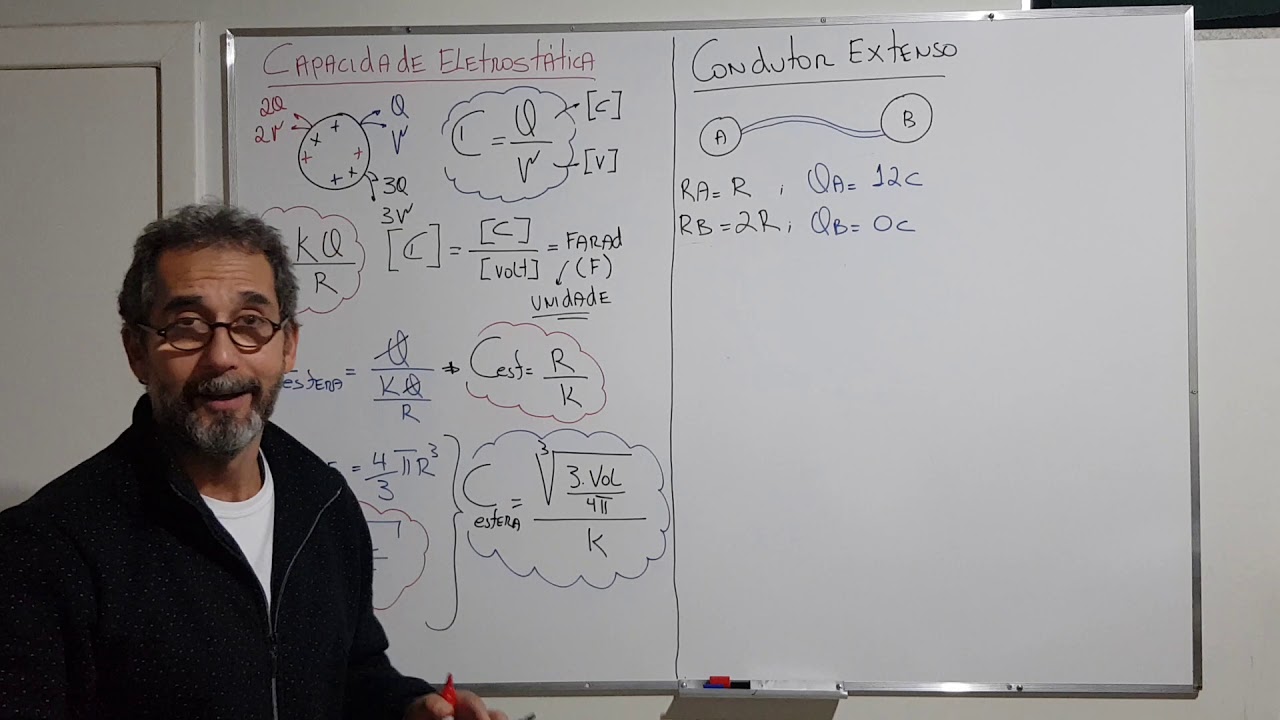 CAPACIDADE ELETROSTÁTICA
2Q
2V
Q
V
+ + + + + +
3Q
3V
C = Q/V
[C]
[V]
KQ/R
[C] = [C]/[VOLT] = FARAD
(F)
UNIDADE
ESFERA = Q/(KQ/R) → Cest = R/K
= 4/3 πR³
C ESFERA = ³√(3.VOL/4π)/K
CONDUTOR EXTENSO
A
B
RA = R ; QA = 12C
RB = 2R ; QB = 0C